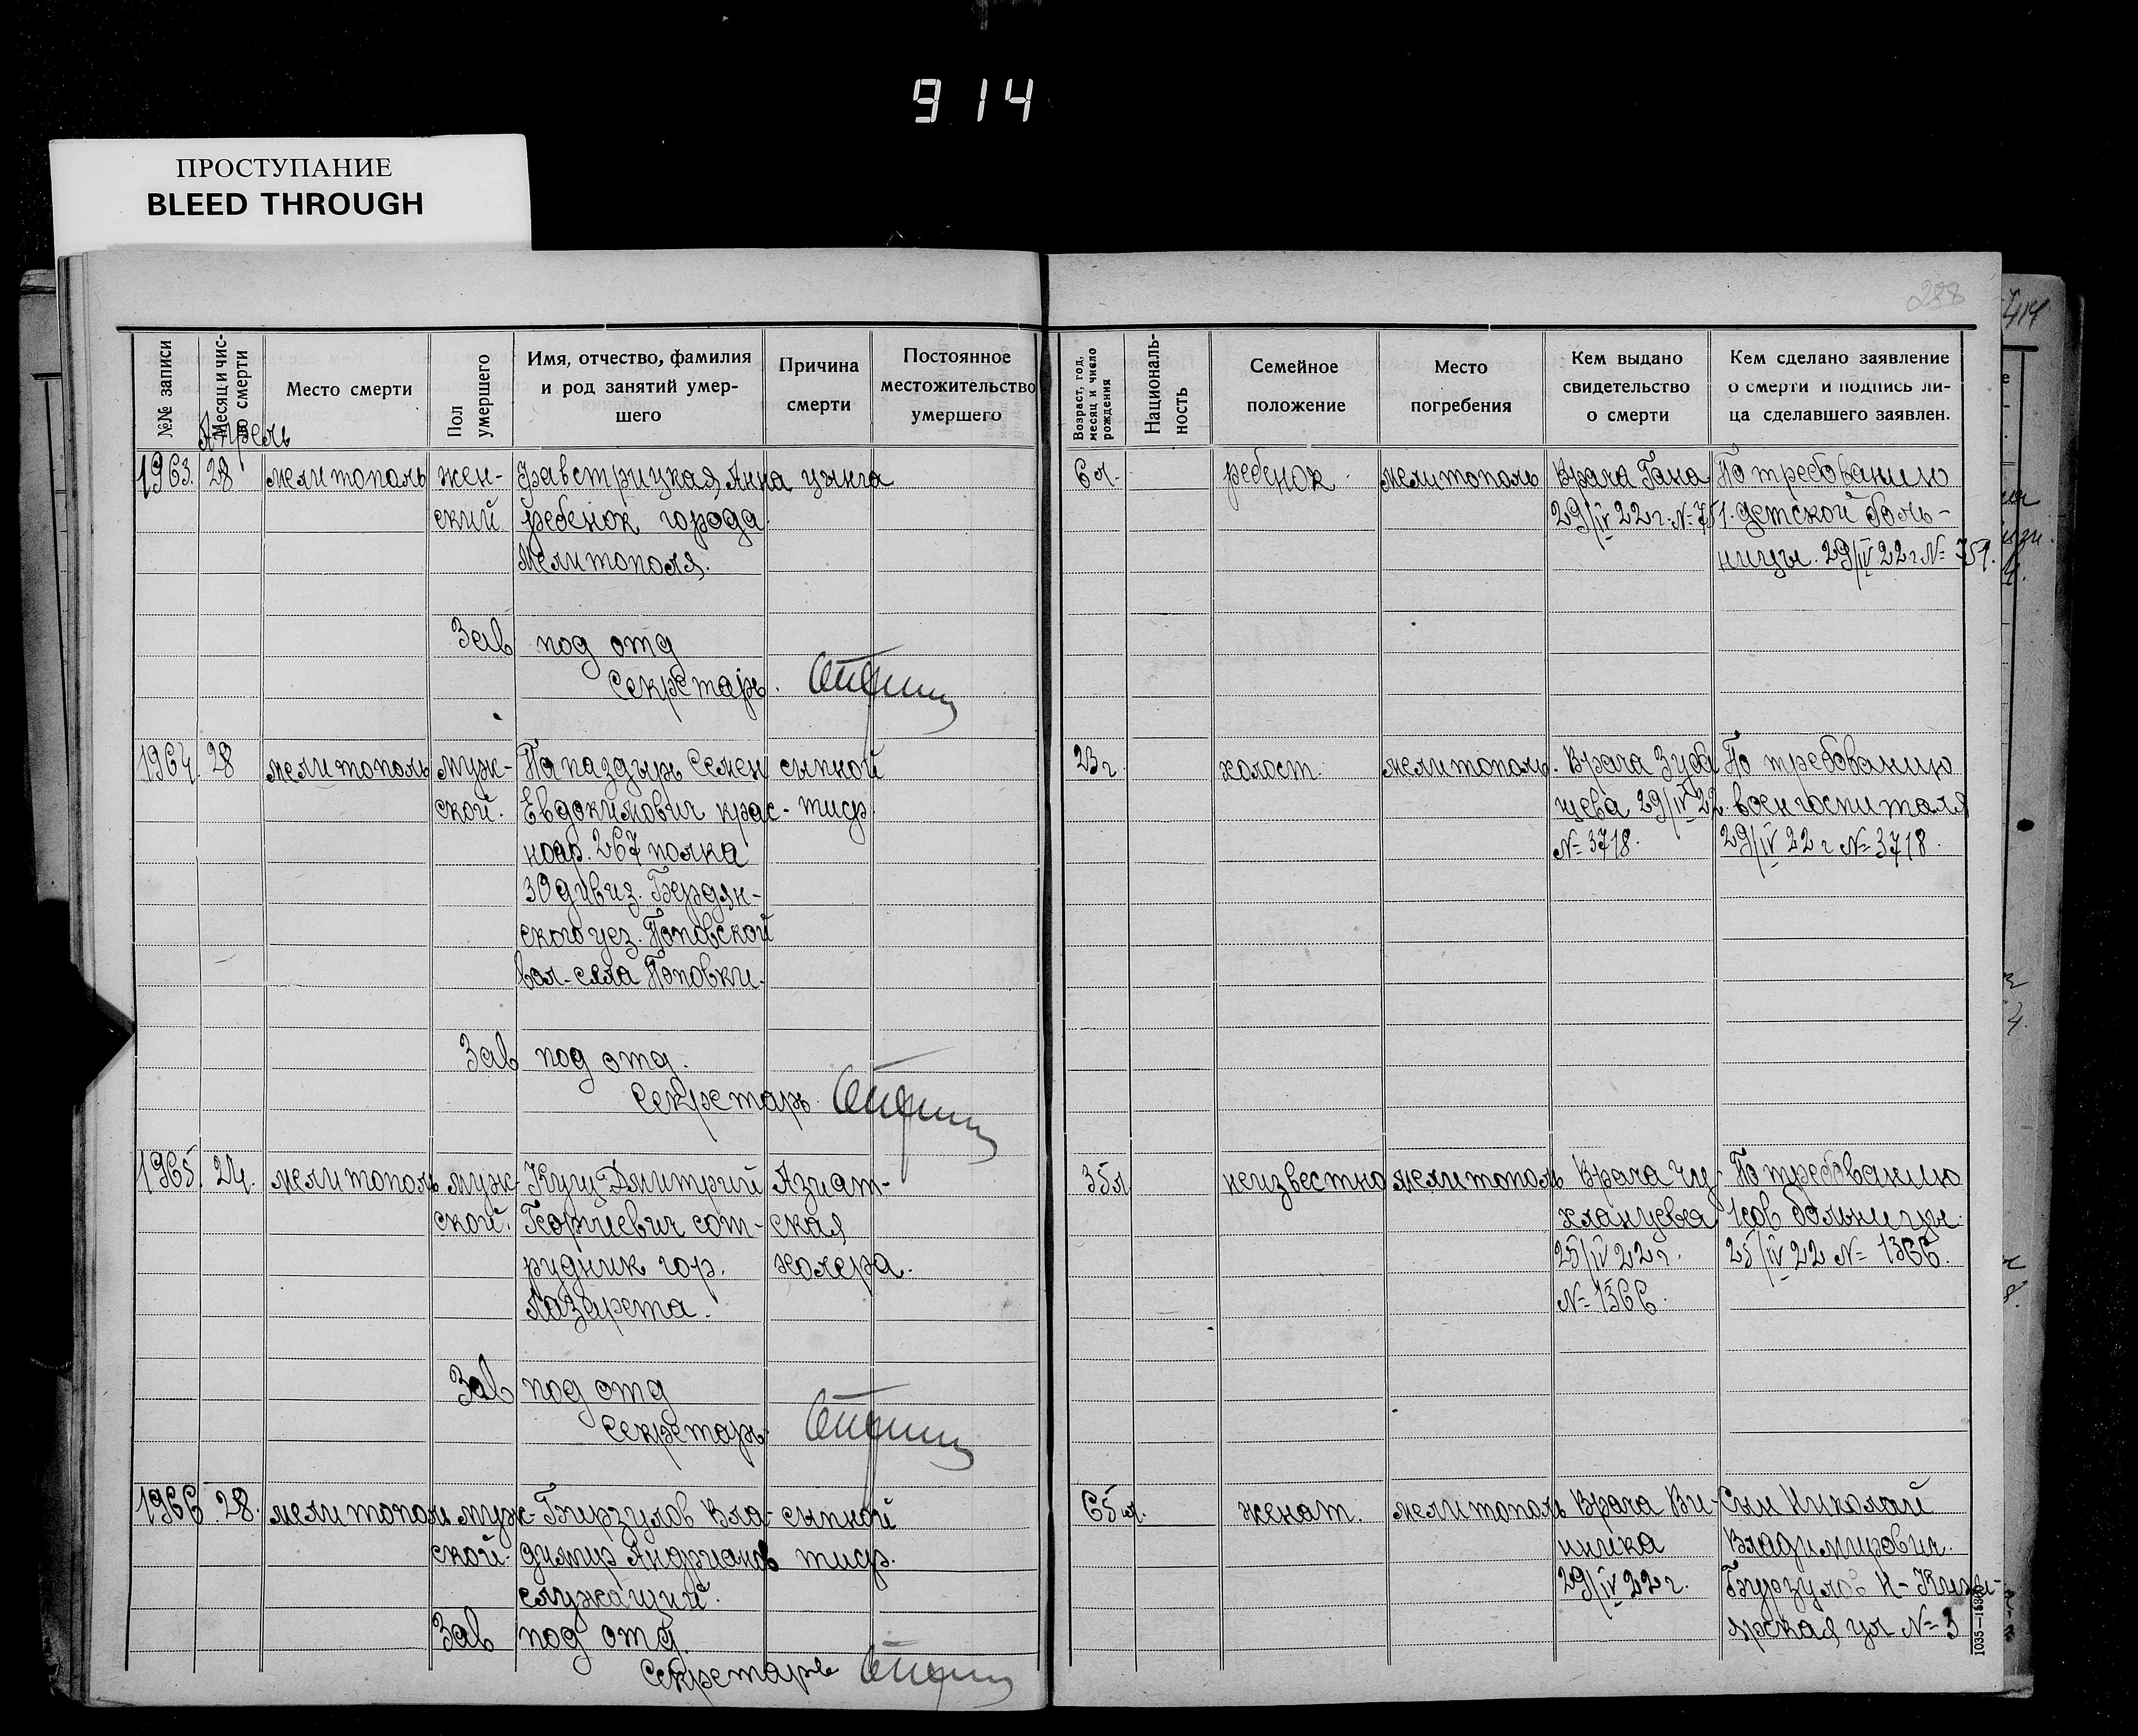 914
ПРОСТУПАНИЕ
BLEED THROUGH
288
№№ записи
Месяц и чис-
ло смерти
Место смерти
Пол
умершего
Имя, отчество, фамилия
и род занятий умер-
шего
Причина
смерти
Постоянное
местожительство
умершего
Возраст, год,
месяц и число
рождения
Националь-
ность
Семейное
положение
Место
погребения
Кем выдано
свидетельство
о смерти
Кем сделано заявление
о смерти и подпись ли-
ца сделавшего заявлен.
Апрель
1963. 28 мелитополь жен- Анна цынга 6 л. ребенок мелитополь Врача Гана По требованию
ский ребенок города 29/IV 22 г. № 751. детской боль-
Мелитополя. ницы. 29/IV 22 г №
Зав под отд
Секретарь.
1964. 28 мелитополь муж- Папаздырь Семен сыпной 23 г. холост. мелитополь. Врача Зуба По требованию
ской. Евдокимович крас- тиф. цева 29/IV 22. воен госпиталя
ноар. 267 полка № 3718. 29/IV 22 г № 3718.
30 дивиз. Бердян-
ского уез. Поповской
вол. села Поповки.
Зав под отд.
Секретарь.
1965. 24. мелитополь муж- Куц Дмитрий Азиат- 35 л неизвестно мелитополь Врача По требованию
ской. Георгиевич сот- ская 1 сов больницы.
рудник гор. холера. 25/IV 22 г. 25/IV 22 № 1366.
Лазарета. № 1366.
Зав под отд
Секретарь
1966 28. мелитополь муж- Бирзулов Вла- сыпной 65 л. женат. мелитополь Врача Ви- Сын Николай
ской. димир Андрианов тиф. Владимирович.
служащий. 29/IV 22 г.
Зав под отд. ул № 3
Секретарь
1035—1838